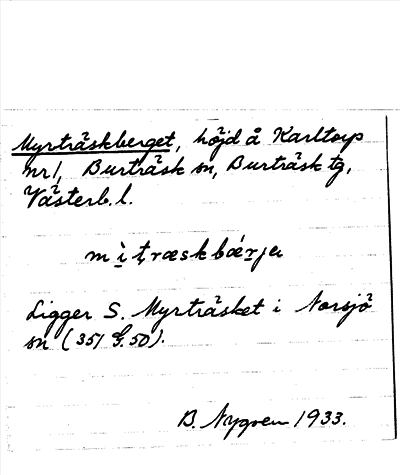 Myrträskberget, höjd å Karltorp
nr 1, Burträsk sn, Burträsk tg,
Västerb. l.
mìtræskbǽrjɐ
Ligger S. Myrträsket i Norsjö
sn (351 G. 50).
B. Nygren 1933.